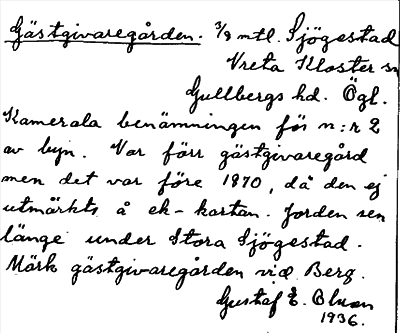 Gästgivaregården. 3/8 mtl. Sjögestad
Vreta Kloster sn
Gullbergs hd. Ögl.
Kamerala benämningen för n:r 2
av byn. Var förr gästgivaregård
men det var före 1870, då den ej
utmärkts å ek-kartan. Jorden sen
länge under Stora Sjögestad.
Märk gästgivaregården vid Berg.
Gustaf E.
1936.